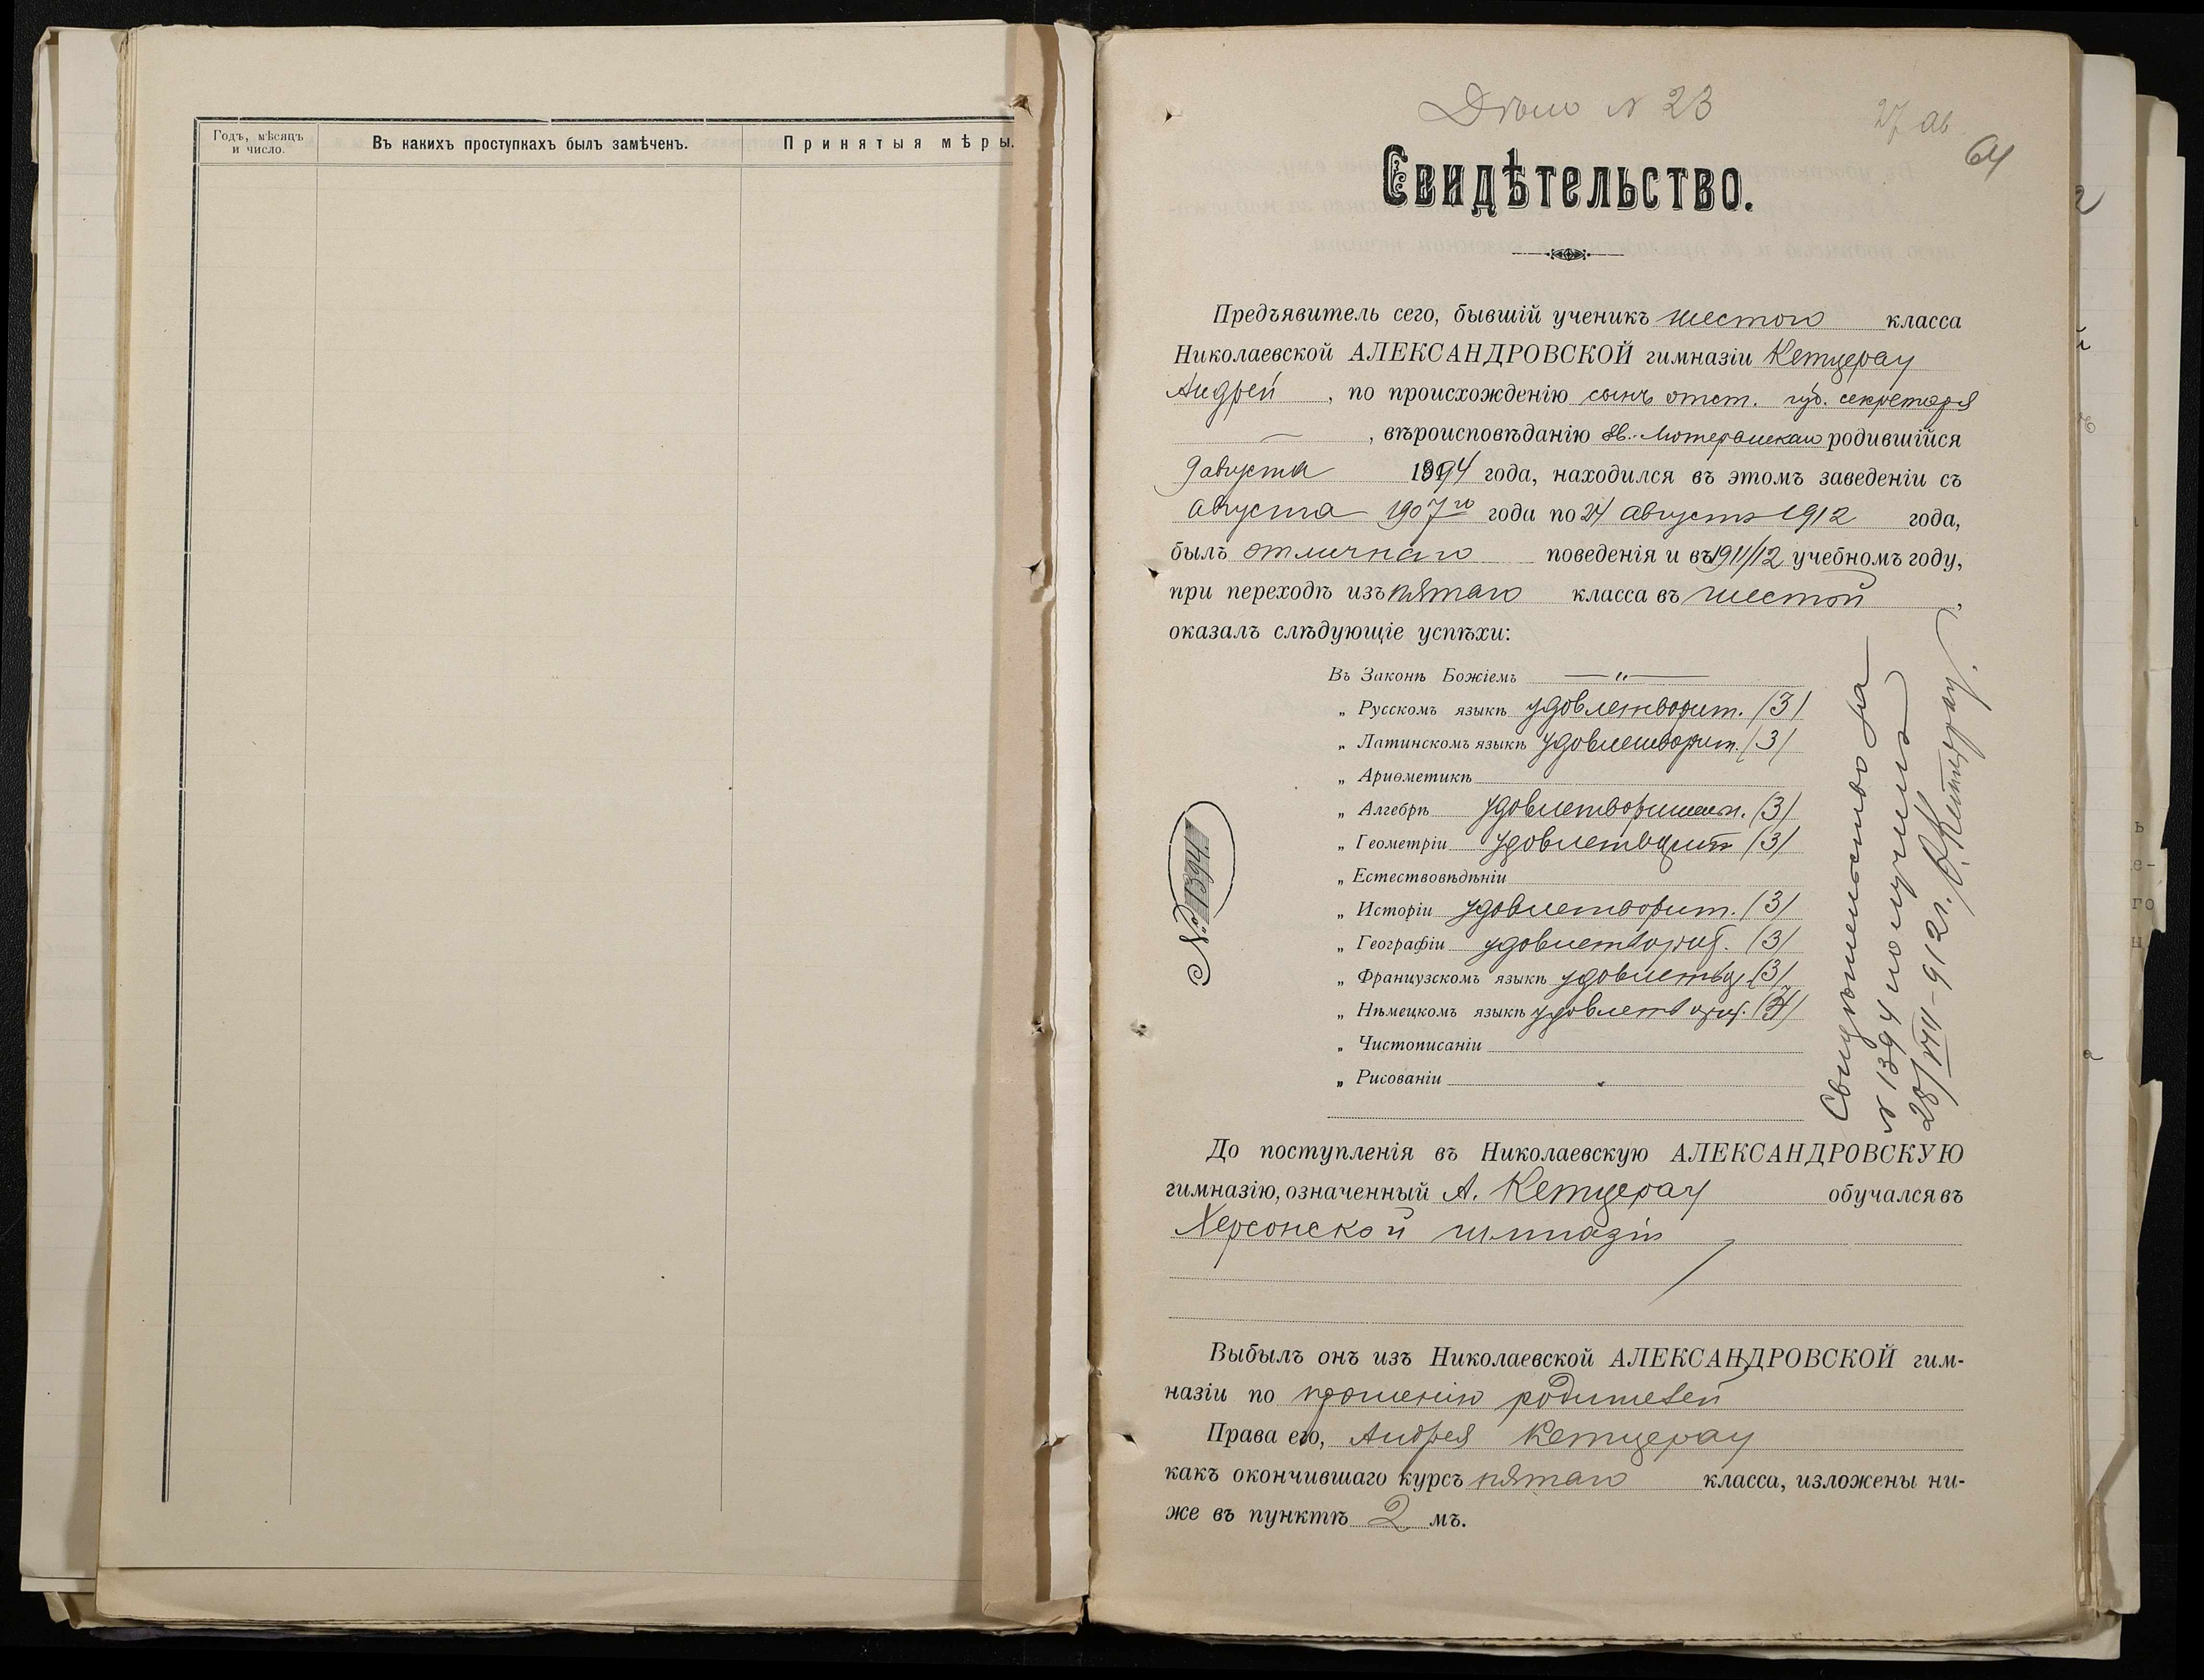 Годъ, мѣсяцъ и число.
Въ какихъ проступкахъ былъ замѣченъ.
Принятыя мѣры.
Дѣло № 23
27 ав.
64
Свидѣтельство.
Предъявитель сего, бывшій ученикъ шестого класса
Николаевской АЛЕКСАНДРОВСКОЙ гимназіи Кетцерау
Андрей, по происхожденію сынъ отст. губ. секретаря
—, вѣроисповѣданію ев.-лютеранскаго родившійся
9 августа 1894 года, находился въ этомъ заведеніи съ
августа 1907го года по 24 августа 1912 года,
былъ отличнаго поведенія и въ 1911/12 учебномъ году,
при переходѣ изъ пятаго класса въ шестой,
оказалъ слѣдующіе успѣхи:
Въ Законѣ Божіемъ — „ —
„ Русскомъ языкѣ удовлетворит. (3)
„ Латинскомъ языкѣ удовлетворит. (3)
„ Ариѳметикѣ
„ Алгебрѣ удовлетворительн. (3)
„ Геометріи удовлетворит (3)
„ Естествовѣдѣніи
„ Исторіи удовлетворит. (3)
„ Географіи удовлетворит. (3)
„ Французскомъ языкѣ удовлетвор (3)
„ Нѣмецкомъ языкѣ удовлетворит. (3)
„ Чистописаніи
„ Рисованіи
№ 1394
Свидѣтельство за
№ 1394 получилъ
28/VIII-912 г. А. Кетцерау.
До поступленія въ Николаевскую АЛЕКСАНДРОВСКУЮ
гимназію, означенный А. Кетцерау обучался въ
Херсонской гимназіи
Выбылъ онъ изъ Николаевской АЛЕКСАНДРОВСКОЙ гим-
назіи по прошенію родителей
Права его, Андрея Кетцерау
какъ окончившаго курсъ пятаго класса, изложены ни-
же въ пунктѣ 2 мъ.